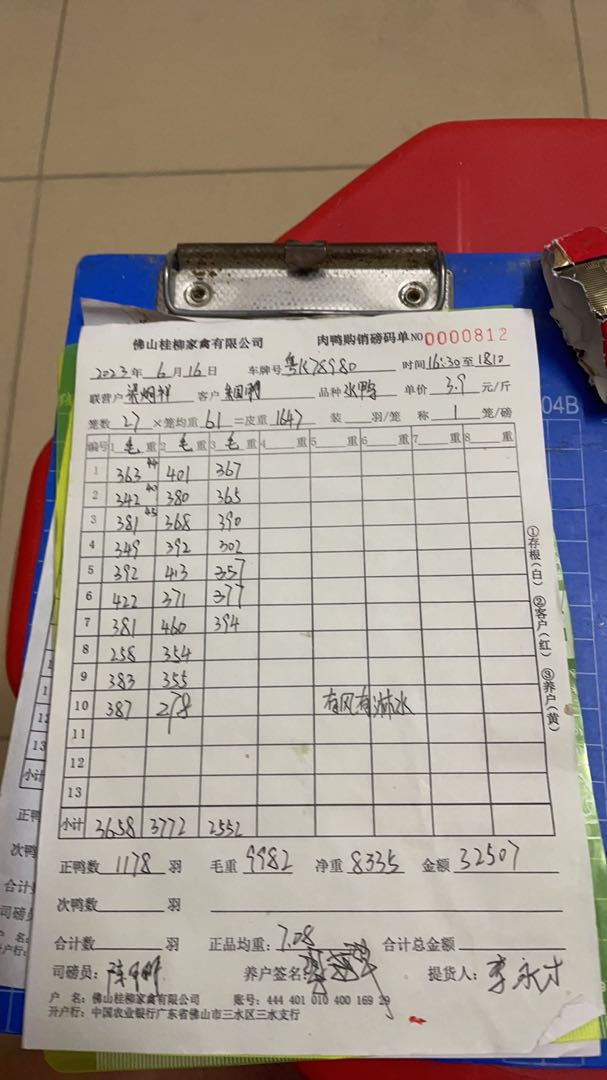 佛山桂柳家禽有限公司 肉鸭购销磅码单 NO 0000812
2023年 6月 16日 车牌号 粤K78980 时间 16:30 至 1810
联营户 客户 品种 水鸭 单价 3.9 元/斤
笼数 27 ×笼均重 61 =皮重 1647 装 羽/笼 称 1 笼/磅
编号 1 毛 重 2 毛 重 3 毛 重 4 重 5 重 6 重 7 重 8 重
1 363 44 401 367
2 342 40 380 365
3 381 45 368 390
4 349 392 302
5 392 413 357
6 422 371 377
7 381 460 394
8 258 354
9 383 355
10 387 278 有风有淋水
11
12
13
小计 3658 3772 2552
正鸭数 1178 羽 毛重 9982 净重 8335 金额 32507
次鸭数 羽
合计数 羽 正品均重: 7.08 合计总金额
司磅员: 养户签名: 提货人: 李永才
户 名: 佛山桂柳家禽有限公司 账号: 444 401 010 400 169 29
开户行: 中国农业银行广东省佛山市三水区三水支行
①存根(白) ②客户(红) ③养户(黄)
04B